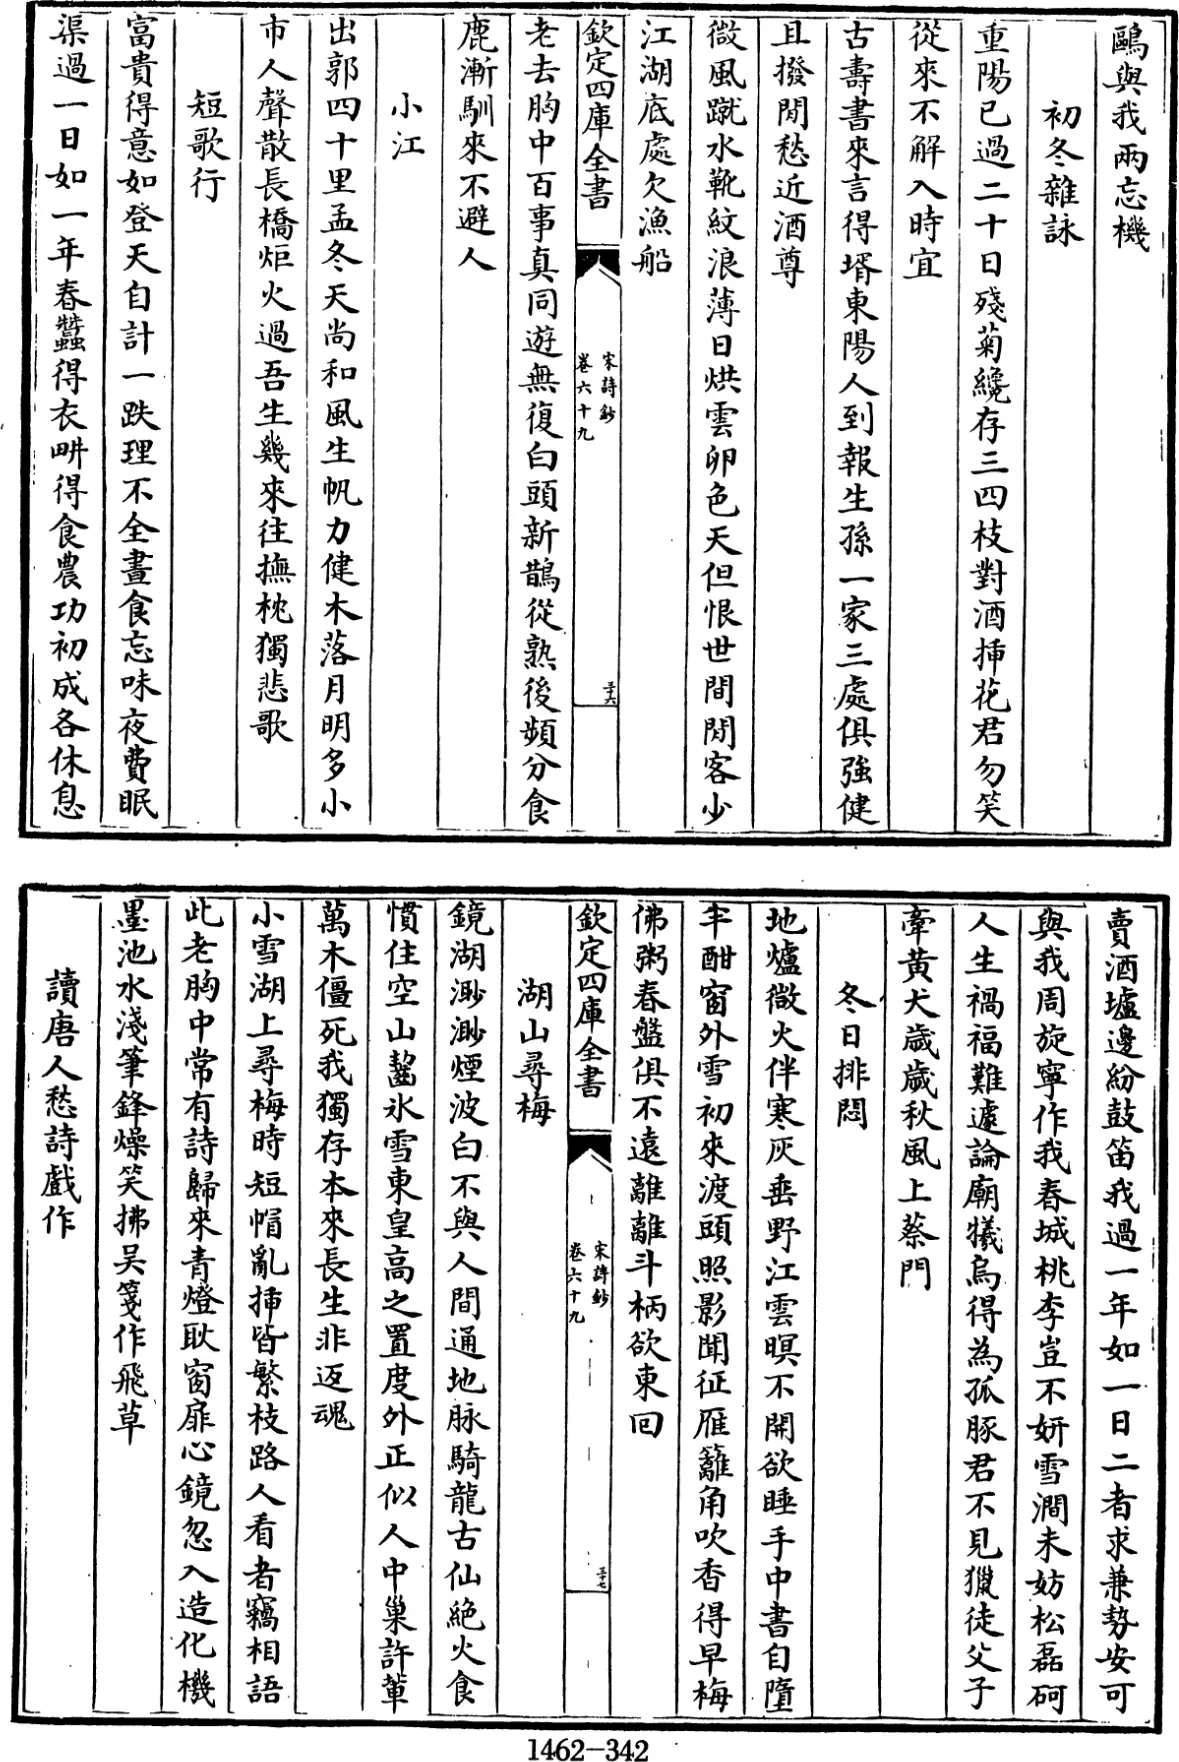 鷗與我兩忘機
初冬雜詠
重陽已過二十日殘菊纔存三四枝對酒揷花君勿笑
從來不解入時宜
古壽書來言得壻東陽人到報生孫一家三處俱強健
且撥閒愁近酒尊
微風蹴水靴紋浪薄日烘雲卵色天但恨世間閒客少
江湖底處欠漁船
欽定四庫全書
宋詩鈔
卷六十九
三十六
老去胸中百事真同遊無復白頭新鵲從熟後頻分食
鹿漸馴來不避人
小江
出郭四十里孟冬天尚和風生帆力健木落月明多小
市人聲散長橋炬火過吾生幾來往撫枕獨悲歌
短歌行
富貴得意如登天自計一跌理不全晝食忘味夜費眠
渠過一日如一年春蠶得衣畊得食農功初成各休息
賣酒壚邊紛鼓笛我過一年如一日二者求兼勢安可
與我周旋寧作我春城桃李豈不妍雪澗未妨松磊砢
人生禍福難遽論廟犧烏得為孤豚君不見獵徒父子
牽黃犬歲歲秋風上蔡門
冬日排悶
地爐微火伴寒灰垂野江雲暝不開欲睡手中書自墮
半酣窗外雪初來渡頭照影聞征雁籬角吹香得早梅
佛粥春盤俱不遠離離斗柄欲東回
欽定四庫全書
宋詩鈔
卷六十九
三十七
湖山尋梅
鏡湖渺渺煙波白不與人間通地脉騎龍古仙絶火食
慣住空山齧氷雪東皇高之置度外正似人中巢許輩
萬木僵死我獨存本來長生非返魂
小雪湖上尋梅時短帽亂揷皆繁枝路人看者竊相語
此老胸中常有詩歸來青燈耿窗扉心鏡忽入造化機
墨池水淺筆鋒燥笑拂吴箋作飛草
讀唐人愁詩戲作
1462-342